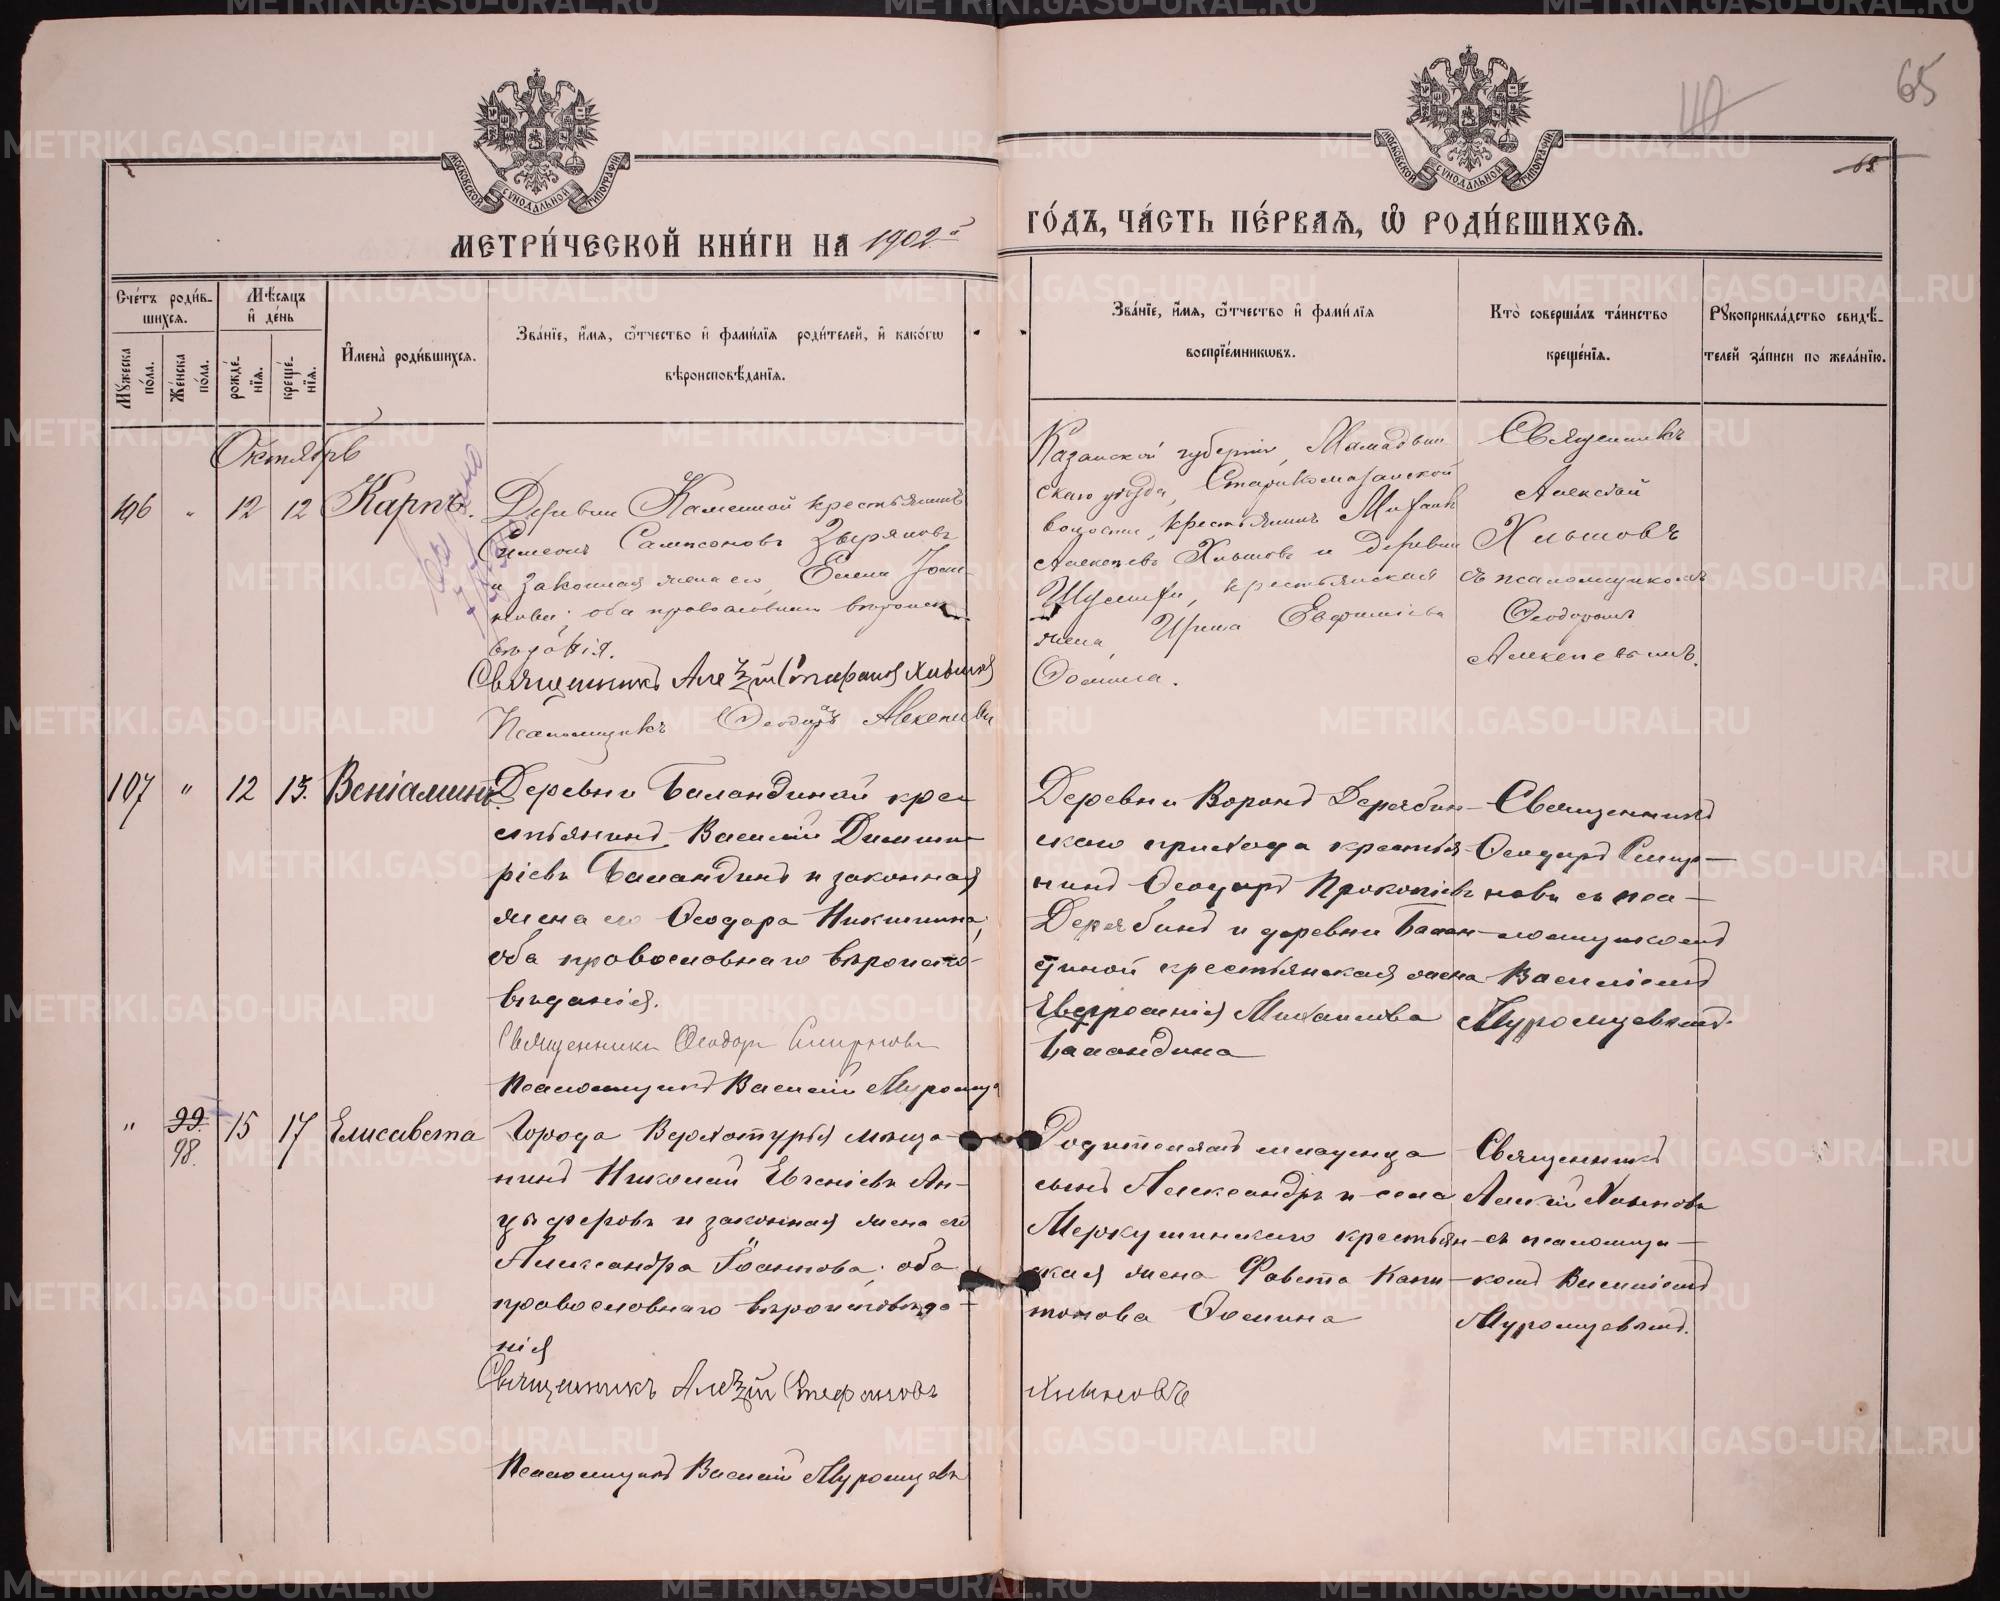 65
110
65
МОСКОВСКОЙ СѴНОДАЛЬНОЙ ТИПОГРАФІИ
МОСКОВСКОЙ СѴНОДАЛЬНОЙ ТИПОГРАФІИ
МЕТРИ́ЧЕСКОЙ КНИ́ГИ НА 1902й
ГО́ДЪ, ЧА́СТЬ ПЕ́РВАѦ, Ѽ РОДИ́ВШИХСѦ.
Сче́тъ роди́в-
шихсѧ.
Мѣ́сѧцъ
и де́нь
Мꙋ́жеска
по́ла.
Же́нска
по́ла.
рожде́-
нїѧ.
креще́-
нїѧ.
И҆мена̀ роди́вшихсѧ.
Зва́нїе, и҆́мѧ, ѻ҆́тчество и҆ фами́лїѧ роди́телей, и҆ како́гѡ
вѣроисповѣ́данїѧ.
Зва́нїе, и҆́мѧ, ѻ҆́тчество и҆ фами́лїѧ
воспрїе́мникѡвъ.
Кто̀ соверша́лъ та́инство
креще́нїѧ.
Рꙋкоприкла́дство свидѣ́-
телей за́писи по жела́нїю.
Октябрь
106 " 12 12 Карпъ.
Деревни Каменной крестьянинъ
Симеонъ Сампсоновъ Зыряновъ
и законная жена его Елена Іоан-
нова; оба православнаго вѣроиспо-
вѣданія.
Священникъ Алексій Стефановъ Хлыновъ
Псаломщикъ Ѳеодоръ Алексеевъ
Казанской губерніи, Мамадыш
скаго уѣзда, Старикомазанской
волости, крестьянинъ
Алексеевъ Хлыновъ и деревни
крестьянская
жена, Ирина Евфиміева
Ѳомина.
Священникъ
Алексѣй
Хлыновъ
съ псаломщикомъ
Ѳеодоромъ
Алексеевымъ.
107 " 12 13. Веніаминъ
Деревни Баландиной кре-
стьянинъ Василій Димит-
ріевъ Баландинъ и законная
жена его Ѳеодора Никитина;
оба православнаго вѣроиспо-
вѣданія.
Священникъ Ѳеодоръ Смирновъ
Псаломщикъ Василій Муромце
Деревни Воронъ Дерябин-
скаго прихода крестья-
нинъ Ѳеодоръ Прокопіевъ
Дерябинъ и деревни Балан-
диной крестьянская жена
Евфросинія Михаилова
Баландина
Священникъ
Ѳеодоръ Смир-
новъ съ пса-
ломщикомъ
Василіемъ
Муромцевымъ.
" 99. 15 17 Елисавета
98.
Города Верхотурья мѣща-
нинъ Николай Евгеніевъ Ан-
цыферовъ и законная жена его
Александра Іоаннова; оба
православнаго вѣроисповѣда-
нія
Священникъ Алексій Стефановъ
Хлыновъ
Псаломщикъ Василій Муромцевъ
Родителямъ младенца
сынъ Александръ и села
Меркушинскаго крестьян-
ская жена Фавста Капи-
тонова Ѳомина
Священникъ
Алексій Хлыновъ
съ псаломщи-
комъ Василіемъ
Муромцевымъ.
METRIKI.GASO-URAL.RU